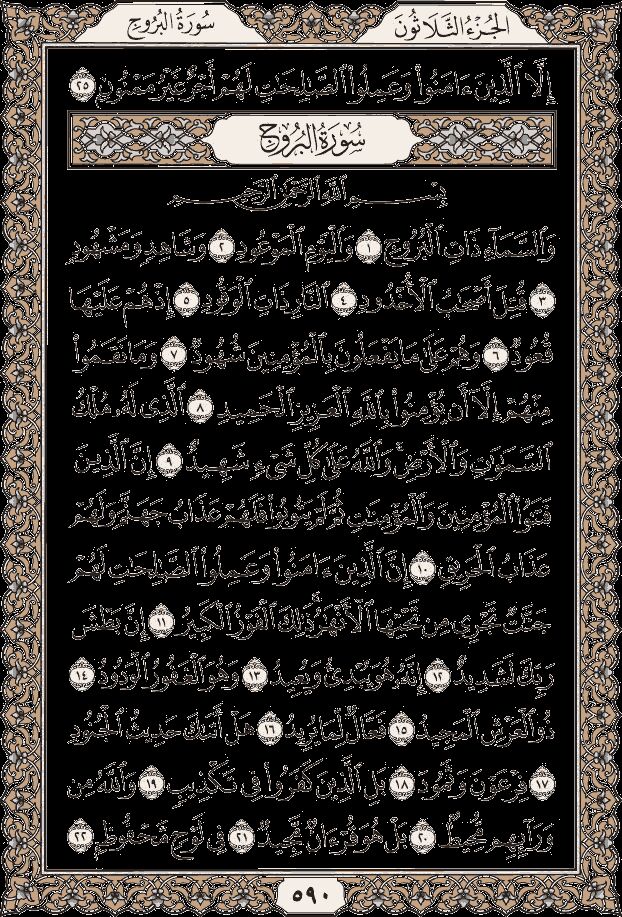 سُورَةُ البُرُوجِ
الجُزْءُ الثَّلَاثُونَ
إِلَّا ٱلَّذِينَ ءَامَنُوا۟ وَعَمِلُوا۟ ٱلصَّٰلِحَٰتِ لَهُمْ أَجْرٌ غَيْرُ مَمْنُونٍۭ ٢٥
سُورَةُ البُرُوجِ
بِسْمِ ٱللَّهِ ٱلرَّحْمَٰنِ ٱلرَّحِيمِ
وَٱلسَّمَآءِ ذَاتِ ٱلْبُرُوجِ ١ وَٱلْيَوْمِ ٱلْمَوْعُودِ ٢ وَشَاهِدٍ وَمَشْهُودٍ
٣ قُتِلَ أَصْحَٰبُ ٱلْأُخْدُودِ ٤ ٱلنَّارِ ذَاتِ ٱلْوَقُودِ ٥ إِذْ هُمْ عَلَيْهَا
قُعُودٌ ٦ وَهُمْ عَلَىٰ مَا يَفْعَلُونَ بِٱلْمُؤْمِنِينَ شُهُودٌ ٧ وَمَا نَقَمُوا۟
مِنْهُمْ إِلَّآ أَن يُؤْمِنُوا۟ بِٱللَّهِ ٱلْعَزِيزِ ٱلْحَمِيدِ ٨ ٱلَّذِى لَهُۥ مُلْكُ
ٱلسَّمَٰوَٰتِ وَٱلْأَرْضِ وَٱللَّهُ عَلَىٰ كُلِّ شَىْءٍ شَهِيدٌ ٩ إِنَّ ٱلَّذِينَ
فَتَنُوا۟ ٱلْمُؤْمِنِينَ وَٱلْمُؤْمِنَٰتِ ثُمَّ لَمْ يَتُوبُوا۟ فَلَهُمْ عَذَابُ جَهَنَّمَ وَلَهُمْ
عَذَابُ ٱلْحَرِيقِ ١٠ إِنَّ ٱلَّذِينَ ءَامَنُوا۟ وَعَمِلُوا۟ ٱلصَّٰلِحَٰتِ لَهُمْ
جَنَّٰتٌ تَجْرِى مِن تَحْتِهَا ٱلْأَنْهَٰرُ ۚ ذَٰلِكَ ٱلْفَوْزُ ٱلْكَبِيرُ ١١ إِنَّ بَطْشَ
رَبِّكَ لَشَدِيدٌ ١٢ إِنَّهُۥ هُوَ يُبْدِئُ وَيُعِيدُ ١٣ وَهُوَ ٱلْغَفُورُ ٱلْوَدُودُ ١٤
ذُو ٱلْعَرْشِ ٱلْمَجِيدُ ١٥ فَعَّالٌ لِّمَا يُرِيدُ ١٦ هَلْ أَتَىٰكَ حَدِيثُ ٱلْجُنُودِ
١٧ فِرْعَوْنَ وَثَمُودَ ١٨ بَلِ ٱلَّذِينَ كَفَرُوا۟ فِى تَكْذِيبٍ ١٩ وَٱللَّهُ مِن
وَرَآئِهِم مُّحِيطٌۢ ٢٠ بَلْ هُوَ قُرْءَانٌ مَّجِيدٌ ٢١ فِى لَوْحٍ مَّحْفُوظٍۭ ٢٢
٥٩٠